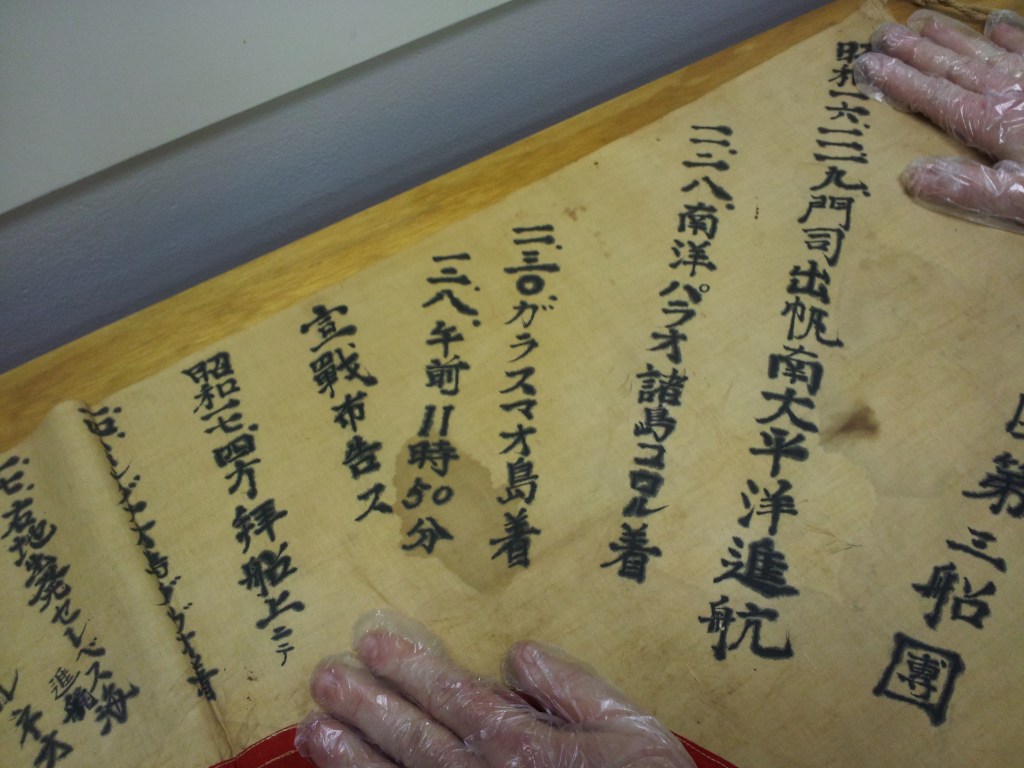 第三船團
昭和一六、一一、一九、門司出帆南大平洋進航
一一、二八、南洋パラオ諸島コロル着
一一、三〇、ガラスマオ島着
一二、八、午前11時50分
宣戰布告ス
昭和一七、四 拝船上ニテ
着
右地出発セレベス海
進航